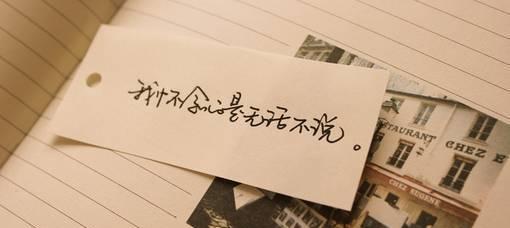 我们不会总是无话不说。
STAURANT CHEZ E
CHEZ EUGENE